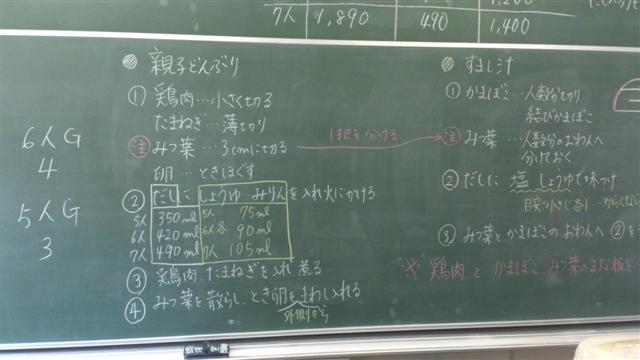 1,200
7人 1,890 490 1,400
6人G
4
5人G
3
親子どんぶり
① 鶏肉…小さく切る
たまねぎ…薄切り
注 みつ葉…3cmに切る
卵…ときほぐす
② だしに しょうゆ・みりんを入れ火にかける
5人 350ml 5人 75ml
6人 420ml 6人各 90ml
7人 490ml 7人 105ml
③ 鶏肉、たまねぎを入れ煮る
④ みつ葉を散らし、とき卵をまわし入れる
外側から
1把を分ける
すまし汁
① かまぼこ…人数分切り
結びかまぼこ
注 みつ葉…人数分のおわんへ
分けておく
② だしに 塩 しょうゆで味つけ
③ みつ葉とかまぼこのおわんへ②を
※ 鶏肉とかまぼこ、みつ葉のまな板を